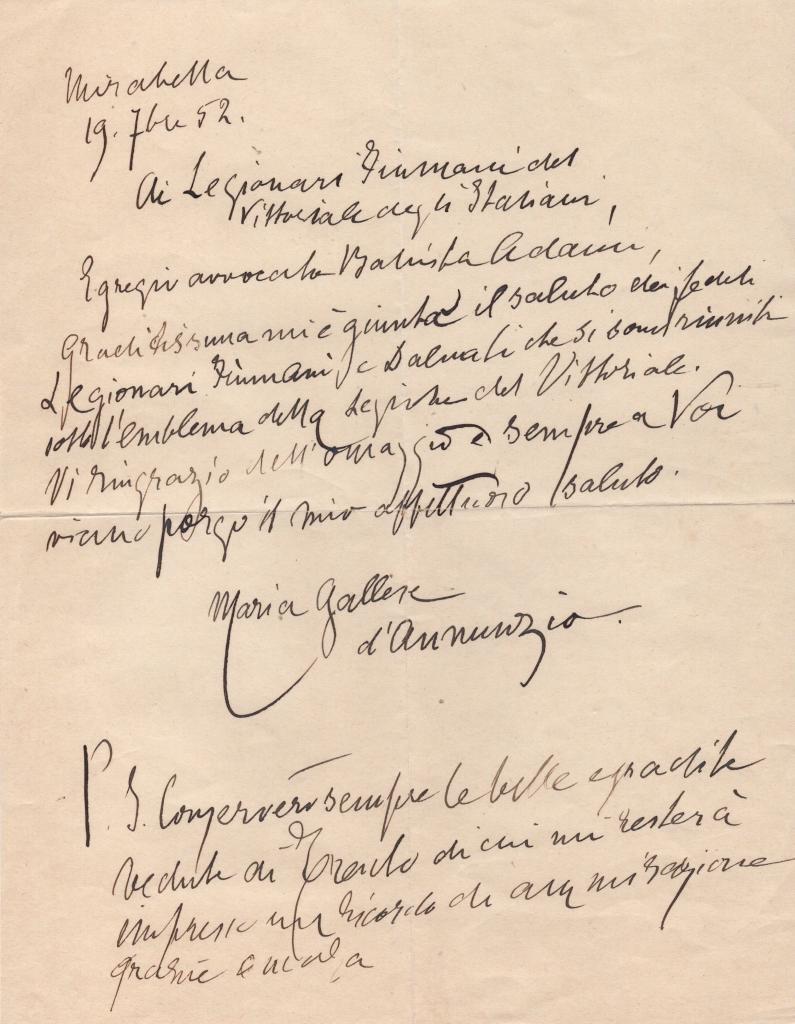 Mirabella
19. 7bre 52.
Ai Legionari Fiumani del
Vittoriale degli Italiani,
Egregio avvocato Battista Adami,
graditissima mi è giunta il saluto dei fedeli
Legionari Fiumani, e Dalmati che si sono riuniti
sotto l'emblema della Legione del Vittoriale.
Vi ringrazio dell'omaggio e sempre a Voi
vicino porgo il mio affettuoso saluto.
Maria Gallese
d'Annunzio.
P.S. Conserverò sempre le belle e gradite
vedute di di cui mi resterà
impresso un ricordo di ammirazione
grazie ancora